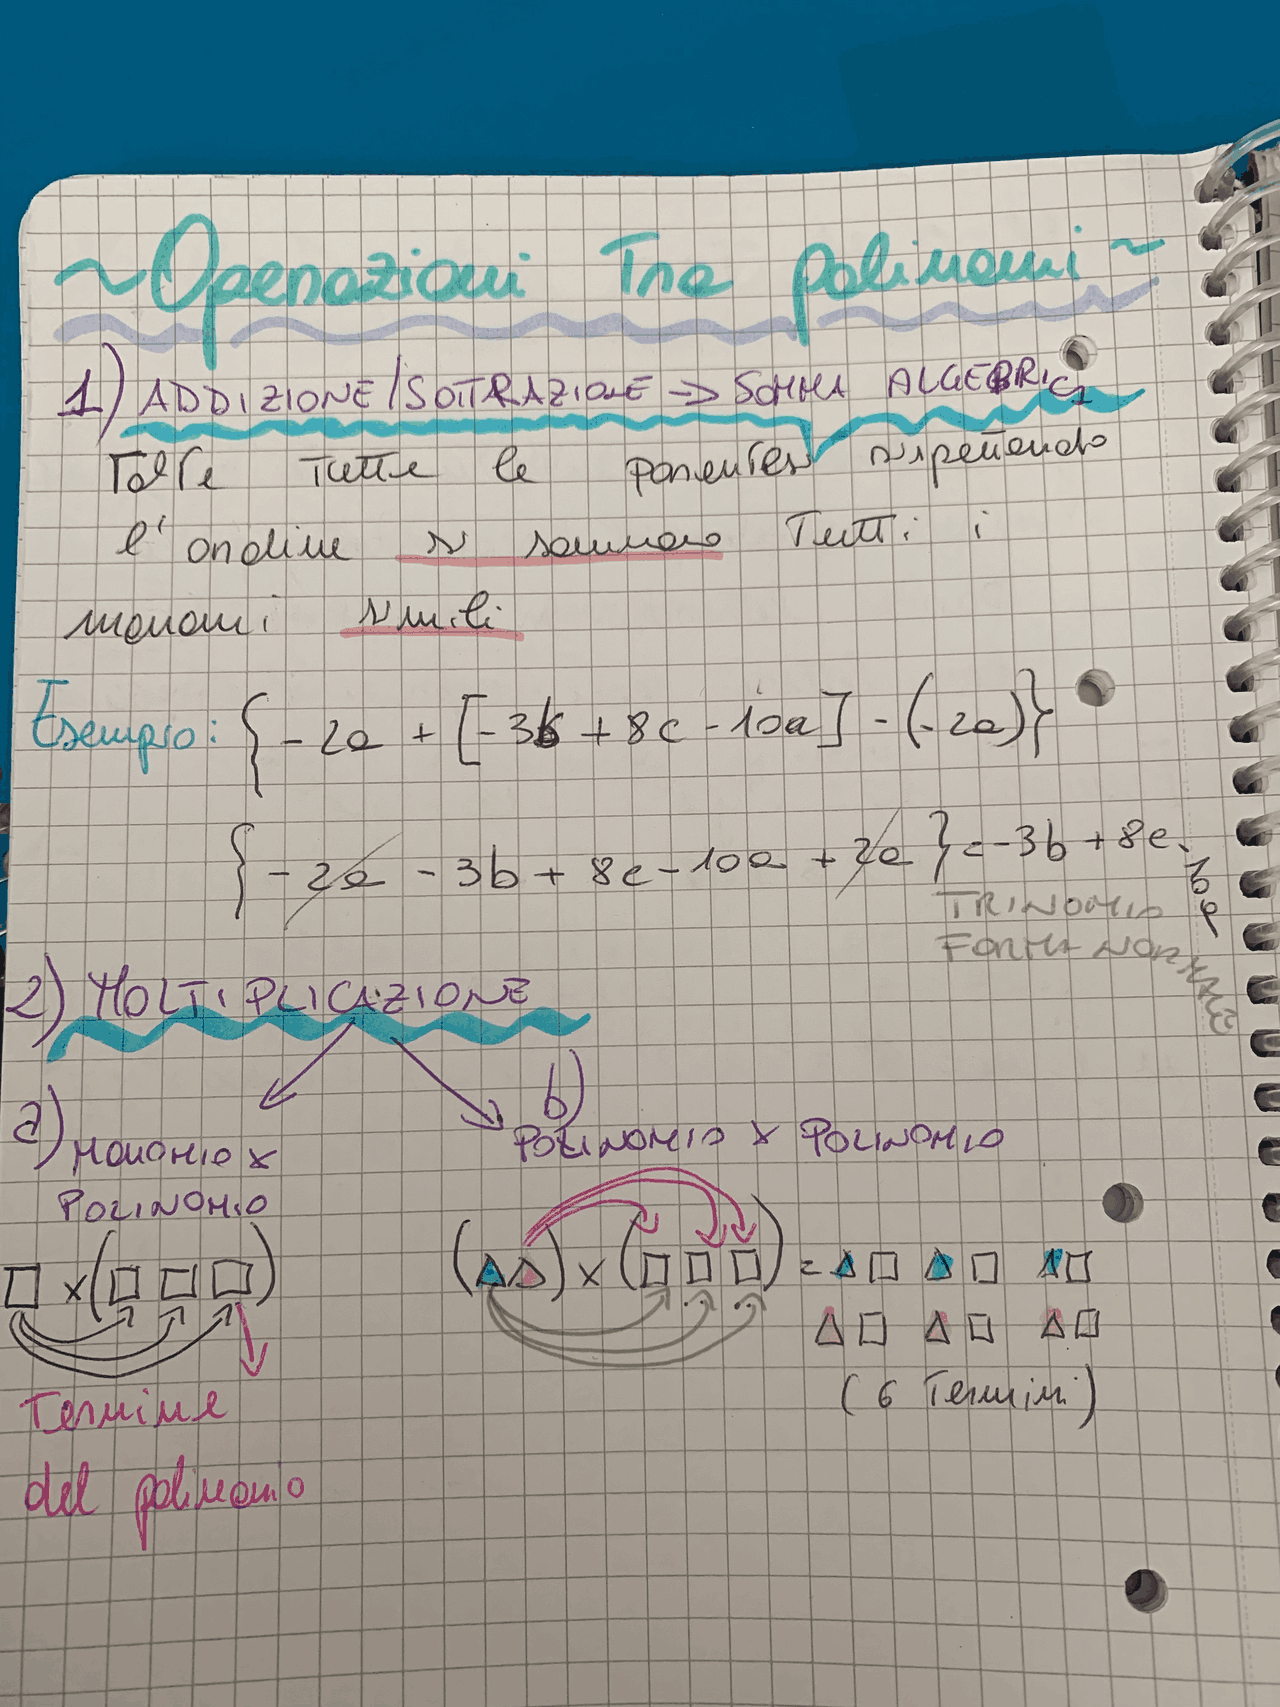 ~Operazioni Tra polinomi~
1) ADDIZIONE/SOTTRAZIONE → SOMMA ALGEBRICA
Tolte tutte le parentesi rispettando
l'ordine si sommano Tutti i
monomi simili
Esempio: {-2a + [-3b + 8c - 10a] - (-2a)}
{-2a - 3b + 8c - 10a + 2a} = -3b + 8c - 10a
TRINOMIO
FORMA NORMALE
2) MOLTIPLICAZIONE
a) MONOMIO X
POLINOMIO
b)
POLINOMIO X POLINOMIO
□ x (□ □ □)
(△△) x (□ □ □) = △□ △□ △□
△□ △□ △□
(6 Termini)
Termine
del polinomio